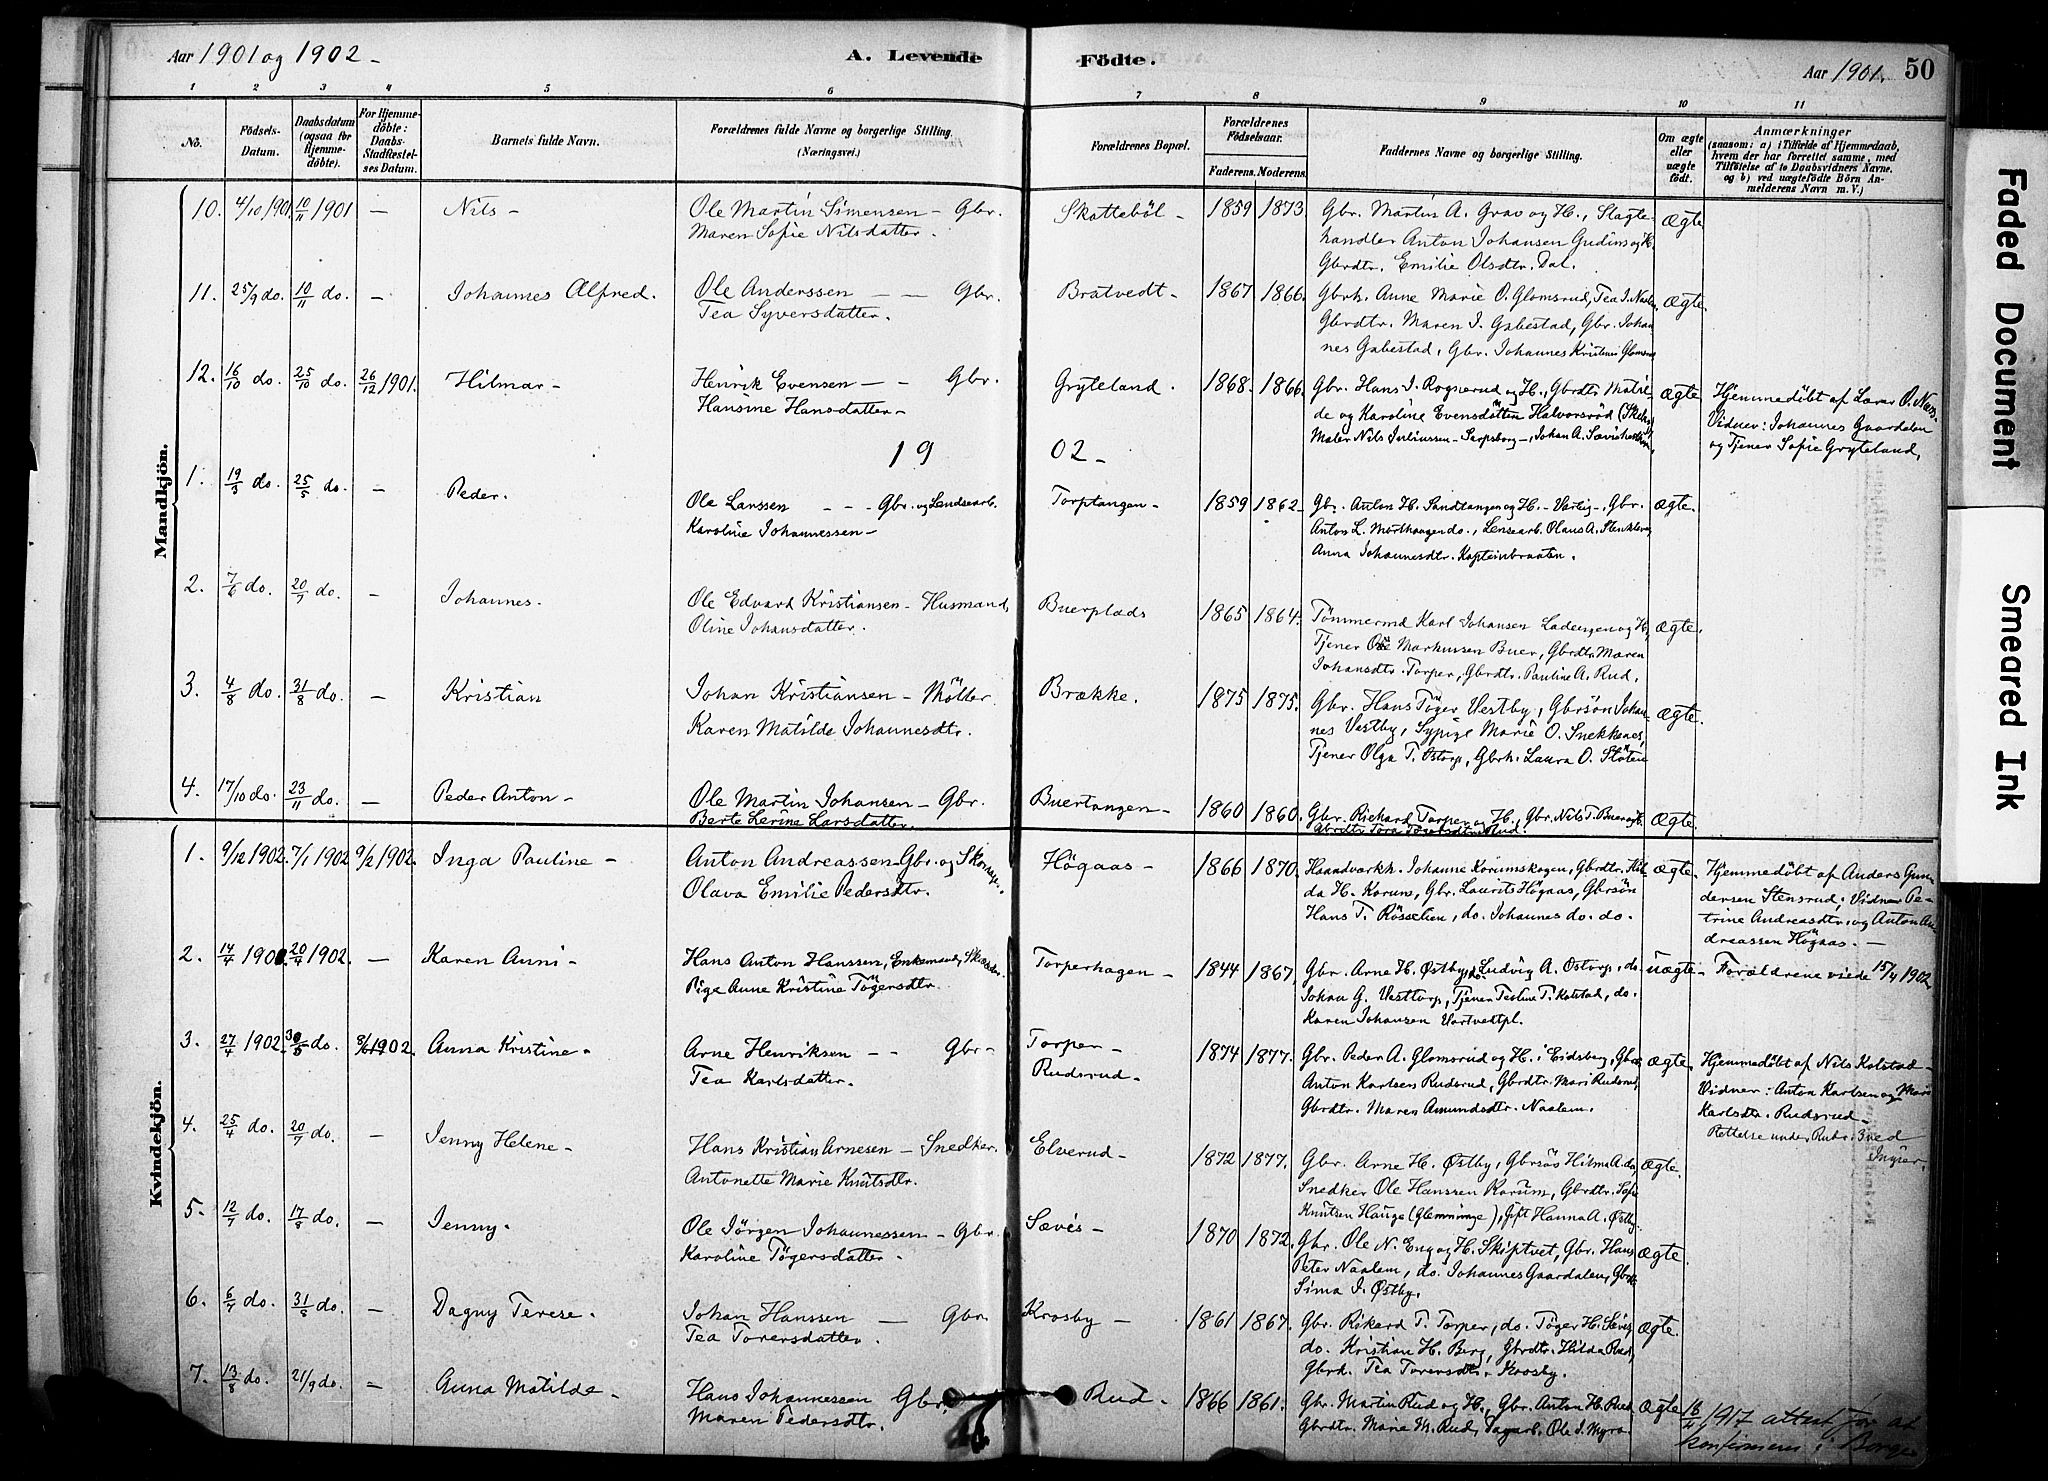 Aar 1901 og 1902 -
A. Levende
Födte.
Aar 1901.
50
1 2 3 4 5 6 7 8 9 10 11
No.
Födsels-
Datum.
Daabsdatum
(ogsaa for
Hjemme-
döbte).
For Hjemme-
döbte:
Daabs-
Stadfæstel-
ses Datum.
Barnets fulde Navn.
Forældrenes fulde Navne og borgerlige Stilling.
(Næringsvei.)
Forældrenes Bopæl.
Forældrenes
Födselsaar.
Faderens. Moderens.
Faddernes Navne og borgerlige Stilling.
Om ægte
eller
uægte
födt.
Anmærkninger
(saasom: a) i Tilfælde af Hjemmedaab,
hvem der har forrettet samme, med
Tilföielse af to Daabsvidners Navne,
og b) ved uægtefödte Börn An-
melderens Navn m. V.)
Mandkjön.
10. 4/10 1901. 10/11 1901 — Nils - Ole Martin Simensen - Gbr. Skatteböl - 1859 1873. Gbr. Martin A. Grav og H., Slagte- ægte.
Maren Sofie Nilsdatter. handler Anton Johansen Gudim og H.
Gbrdtr. Emilie Olsdtr. Dal.
11. 25/9 do. 10/11 do. — Johannes Alfred. Ole Anderssen — — Gbr. Bratvedt - 1867 1866. Gbrk. Anne Marie O. Glomsrud, Tea I. ægte.
Tea Syversdatter. Gbrdtr. Maren I. Gabestad, Gbr. Johan
nes Gabestad, Gbr. Johannes Glomsrud
12. 16/10 do. 25/10 do. 26/12 1901. Hilmar - Henrik Evensen — - Gbr. Gryteland. 1868. 1866. Gbr. Hans I. Rognerud og H., Gbrdtr. Matil- ægte. Hjemmedöbt af Lærer O.
Hansine Hansdatter - de og Karoline Evensdöttre Halvorsröd Vidner: Johannes Gaardalen
Maler Nils Juliussen - Sarpsborg -, Johan A. og Tjener Sofie Gryteland.
19 02 -
1. 19/3 do. 25/5 do. — Peder. Ole Larssen - - - Gbr. og Lendsearb. Torptangen - 1859 1862 Gbr. Anton H. Sandtangen og H. - Vartig -, Gbr. ægte.
Karoline Johannessen - Anton L. do., Lensearb. Olaus A.
Anna Johannesdtr. Kapteinbraaten.
2. 7/6 do. 20/7 do. — Johannes. Ole Edvard Kristiansen - Husmand, Buerplads 1865 1864. Tömmermd Karl Johansen Ladengen og H., ægte.
Oline Johansdatter. Tjener Ole Markussen Buer, Gbrdtr. Maren
Johansdtr. Torper, Gbrdtr. Pauline A. Rud.
3. 4/8 do. 31/8 do. — Kristian Johan Kristiansen - Möller. Brække. 1875 1875. Gbr. Hans Töger Vestby, Gbrsön Johan- ægte.
Karen Matilde Johannesdtr. nes Vestby, Sypige Marie O. Snekkenes,
Tjener Olga T. Ostorp, Gbrk. Laura O. Slöten
4. 17/10 do. 23/11 do. — Peder Anton - Ole Martin Johansen - Gbr. Buertangen - 1860 1860. Gbr. Rickard Torper og H., Gbr. Nils T. Buer ægte.
Berte Lerine Larsdatter. Gbrdtr. Tora Tögersdtr. Rud.
Kvindekjön.
1. 9/12 1902. 7/1 1902 9/2 1902. Inga Pauline - Anton Andreassen - Gbr. og Högaas - 1866 1870. Haandværkk. Johanne Korumskogen, Gbrdtr. Hil- ægte. Hjemmedöbt af Anders Gun-
Olava Emilie Pedersdtr. da H. Korum, Gbr. Laurits Högaas, Gbrsön dersen Stensrud; Vidner Pe-
Hans T. Rösselien, do. Johannes do. do. trine Andreasdtr. og Anton An-
dreassen Högaas. —
2. 14/4 1902. 20/4 1902. — Karen Anni - Hans Anton Hanssen, Enkemand, Torperhagen - 1844 1867, Gbr. Arne H. Östby, Ludvig A. Ostorp, do. uægte - Forældrene viede 15/4 1902
Pige Anne Kristine Tögersdtr. Johan G. Vesttorp, Tjener Tesline T. Kolstad, do.
Karen Johansen Vartvetpl.
3. 27/4 1902. do. 8/6 1902. Anna Kristine - Arne Henriksen — - Gbr - Torper - 1874 1877. Gbr. Peder A. Glomsrud og H. i Eidsberg, Gbr. ægte. Hjemmedöbt af Nils Kolstad -
Tea Karlsdatter. Rudsrud - Anton Karlsen Rudsrud, Gbrdtr. Mari Rudsrud, Vidner: Anton Karlsen og Mari
Gbrdtr. Maren Amundsdtr. Naalem. Karlsdtr. Rudsrud -
Rettelse under Rubr. 3 ved
4. 25/4 do. 20/7 do. — Jenny Helene - Hans Kristian Arnesen - Snedker. Elverud - 1872 1877. Gbr. Arne H. Östby, Gbrsös Hilma A. do. ægte.
Antonette Marie Knutsdtr. Snedker Ole Hanssen Korum, Gbrdtr. Sofie
Knutsen Hauge (Glemminge), Gift Hanna A. Östby.
5. 12/7 do. 17/8 do. — Jenny. Ole Jörgen Johannessen - Gbr. Sævös - 1870 1872. Gbr. Ole N. Eng og H. Skiptvet, Gbr. Hans ægte.
Karoline Tögersdatter - Peter Naalem, do. Johannes Gaardalen,
Sima I. Östby.
6. 6/7 do. 31/8 do. — Dagny Terese. Johan Hanssen — Gbr. Krosby — 1861 1867. Gbr. Rikard T. Torper, do. Töger H. Sævös, ægte.
Tea Torersdatter. do. Kristian H. Berg, Gbrdtr. Hilda Rud,
Gbrk. Tea Torersdtr. Krosby.
7. 13/8 do. 21/9 do. — Anna Matilde - Hans Johannessen Gbr. Rud. 1866 1861. Gbr. Martin Rud og H., Gbr. Anton H. Rud ægte. 1917 attest for at
Maren Pedersdtr. Gbrdtr. Marie M. Rud, Dagarb. Ole I. Myra. konfirmeres i Borge
Faded Document
Smeared Ink